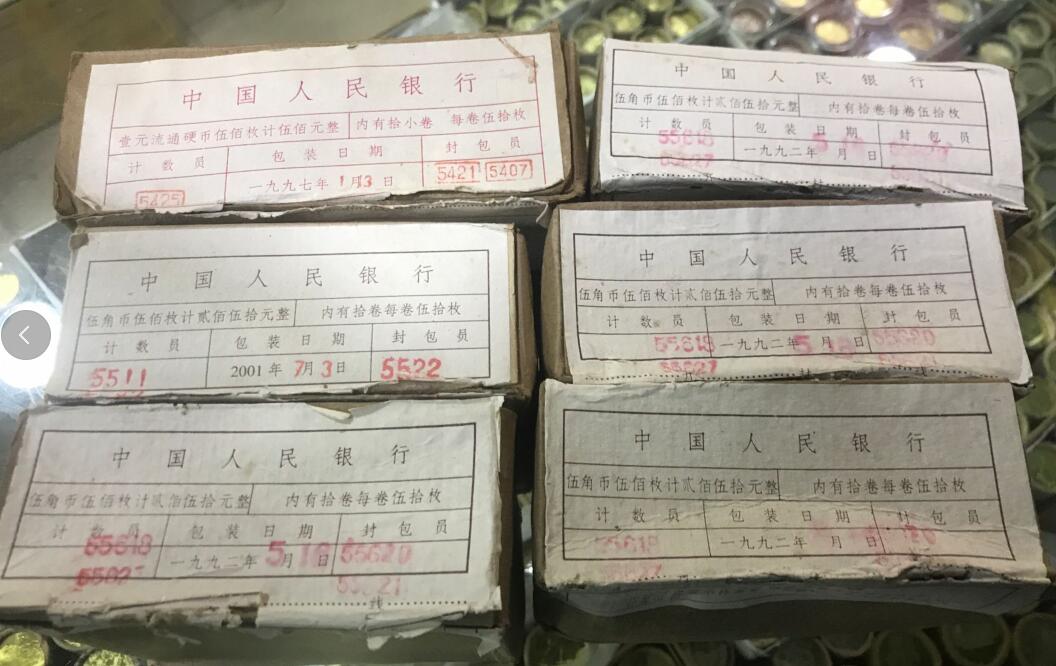 中国人民银行
壹元流通硬币伍佰枚计伍佰元整 内有拾小卷 每卷伍拾枚
计数员 包装日期 封包员
5425 一九九七年1月3日 5421 5407
中国人民银行
伍角币伍佰枚计贰佰伍拾元整 内有拾卷每卷伍拾枚
计数员 包装日期 封包员
55618 一九九二年5月日
中国人民银行
伍角币伍佰枚计贰佰伍拾元整 内有拾卷每卷伍拾枚
计数员 包装日期 封包员
5511 2001年7月3日 5522
中国人民银行
伍角币伍佰枚计贰佰伍拾元整 内有拾卷每卷伍拾枚
计数员 包装日期 封包员
55618 一九九二年5月日 55620
55627
中国人民银行
伍角币伍佰枚计贰佰伍拾元整 内有拾卷每卷伍拾枚
计数员 包装日期 封包员
55618 一九九二年5月16日 55620
55621
线
中国人民银行
伍角币伍佰枚计贰佰伍拾元整 内有拾卷每卷伍拾枚
计数员 包装日期 封包员
55618 一九九二年月日